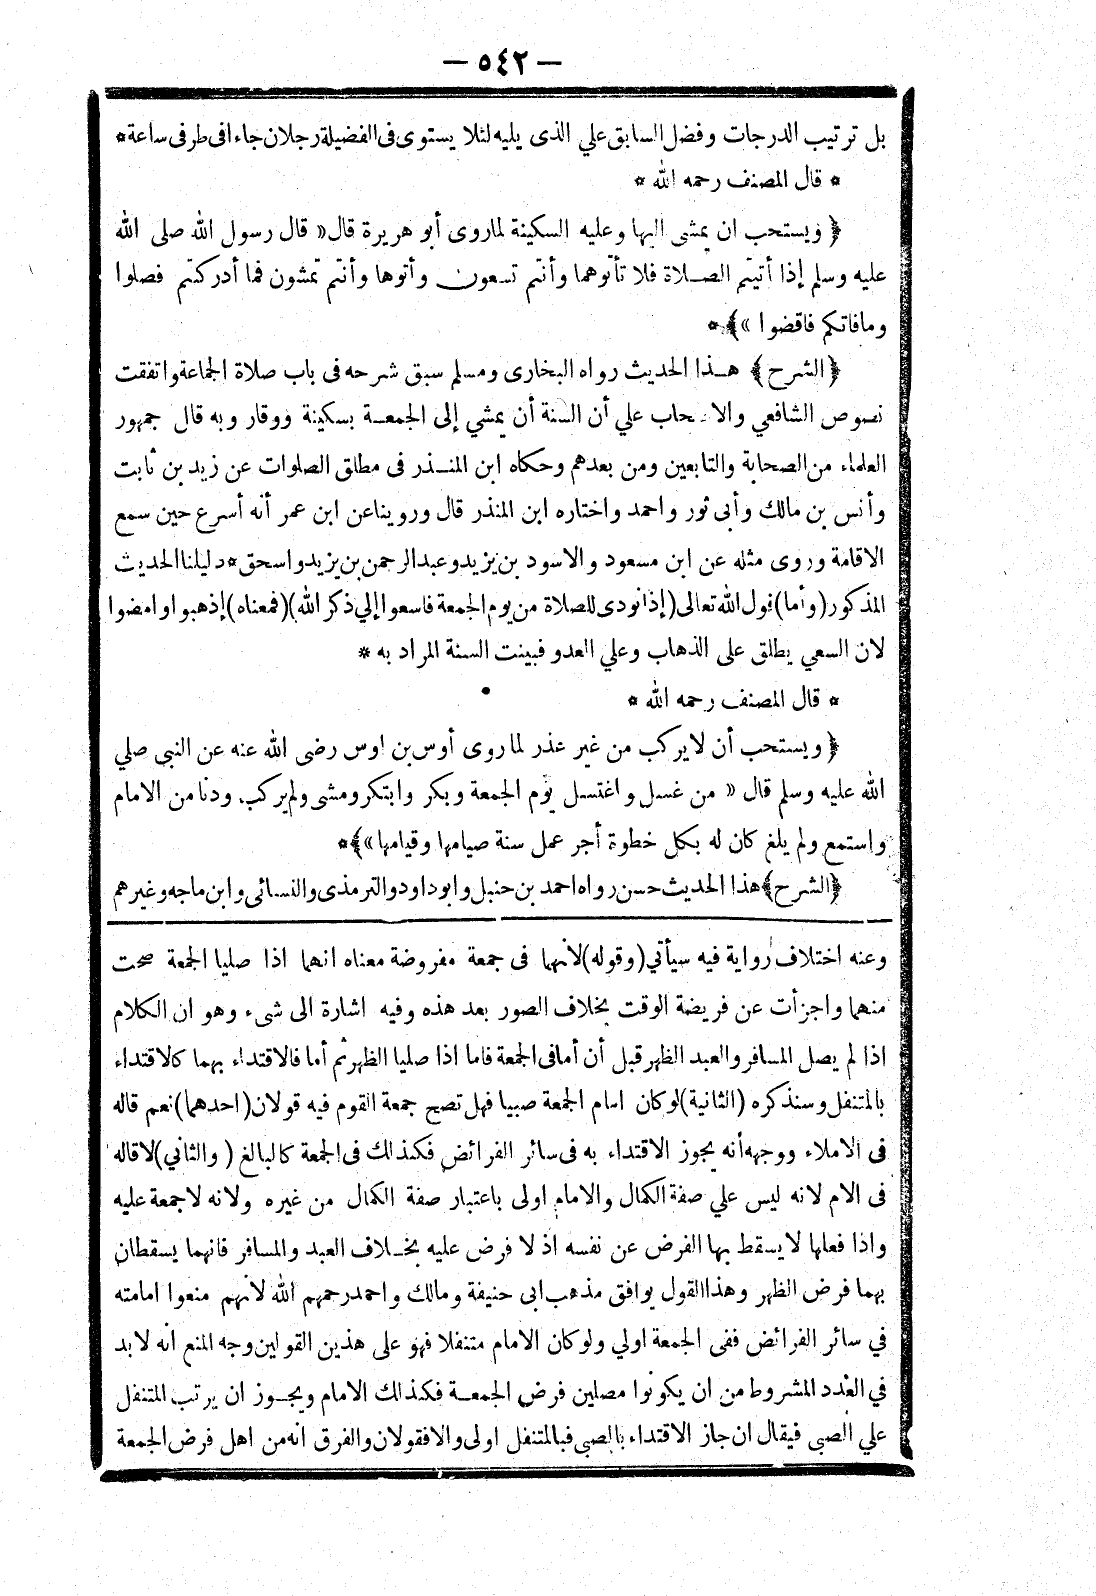 — ٥٤٢ —
بل ترتيب الدرجات وفضل السابق علي الذى يليه لئلا يستوى فى الفضيلة رجلان جاءا فى طرفى ساعة *
* قال المصنف رحمه الله *
﴿ ويستحب ان يمشى اليها وعليه السكينة لما روى أبو هريرة قال « قال رسول الله صلى الله
عليه وسلم إذا أتيتم الصلاة فلا تأتوهما وأنتم تسعون وأتوها وأنتم تمشون فما أدركتم فصلوا
وما فاتكم فاقضوا »﴾ *
﴿الشرح﴾ هذا الحديث رواه البخارى ومسلم سبق شرحه فى باب صلاة الجماعة واتفقت
نصوص الشافعي والاصحاب علي أن السنة أن يمشي إلى الجمعة بسكينة ووقار وبه قال جمهور
العلماء من الصحابة والتابعين ومن بعدهم وحكاه ابن المنذر فى مطلق الصلوات عن زيد بن ثابت
وأنس بن مالك وأبى ثور واحمد واختاره ابن المنذر قال وروينا عن ابن عمر أنه أسرع حين سمع
الاقامة وروى مثله عن ابن مسعود والاسود بن يزيد وعبد الرحمن بن يزيد واسحق * دليلنا الحديث
المذكور (وأما) قول الله تعالى (إذا نودى للصلاة من يوم الجمعة فاسعوا إلي ذكر الله) (فمعناه) إذهبوا وامضوا
لان السعي يطلق على الذهاب وعلي العدو فبينت السنة المراد به *
* قال المصنف رحمه الله *
﴿ ويستحب أن لا يركب من غير عذر لما روى أوس بن اوس رضى الله عنه عن النبي صلي
الله عليه وسلم قال « من غسل واغتسل يوم الجمعة وبكر وابتكر ومشى ولم يركب ودنا من الامام
واستمع ولم يلغ كان له بكل خطوة أجر عمل سنة صيامها وقيامها »﴾ *
﴿الشرح﴾ هذا الحديث حسن رواه احمد بن حنبل وابو داود والترمذى والنسائى وابن ماجه وغيرهم
وعنه اختلاف رواية فيه سيأتي (وقوله) لأنهما فى جمعة مفروضة معناه انهما اذا صليا الجمعة صحت
منهما واجزأت عن فريضة الوقت بخلاف الصور بعد هذه وفيه اشارة الى شىء وهو ان الكلام
اذا لم يصل المسافر والعبد الظهر قبل أن أما فى الجمعة فاما اذا صليا الظهر ثم أما فالاقتداء بهما كالاقتداء
بالمتنفل وسنذكره (الثانية) لو كان امام الجمعة صبيا فهل تصح جمعة القوم فيه قولان (احدهما) نعم قاله
فى الاملاء ووجهه أنه يجوز الاقتداء به فى سائر الفرائض فكذلك فى الجمعة كالبالغ (والثاني) لا قاله
فى الام لانه ليس علي صفة الكمال والامام اولى باعتبار صفة الكمال من غيره ولانه لا جمعة عليه
واذا فعلها لا يسقط بها الفرض عن نفسه اذ لا فرض عليه بخلاف العبد والمسافر فانهما يسقطان
بهما فرض الظهر وهذا القول يوافق مذهب ابى حنيفة ومالك واحمد رحمهم الله لأنهم منعوا امامته
في سائر الفرائض ففى الجمعة اولي ولو كان الامام متنفلا فهو على هذين القولين وجه المنع انه لا بد
في العدد المشروط من ان يكونوا مصلين فرض الجمعة فكذلك الامام ويجوز ان يرتب المتنفل
علي الصبى فيقال ان جاز الاقتداء بالصبى فبالمتنفل اولى والا فقولان والفرق انه من اهل فرض الجمعة